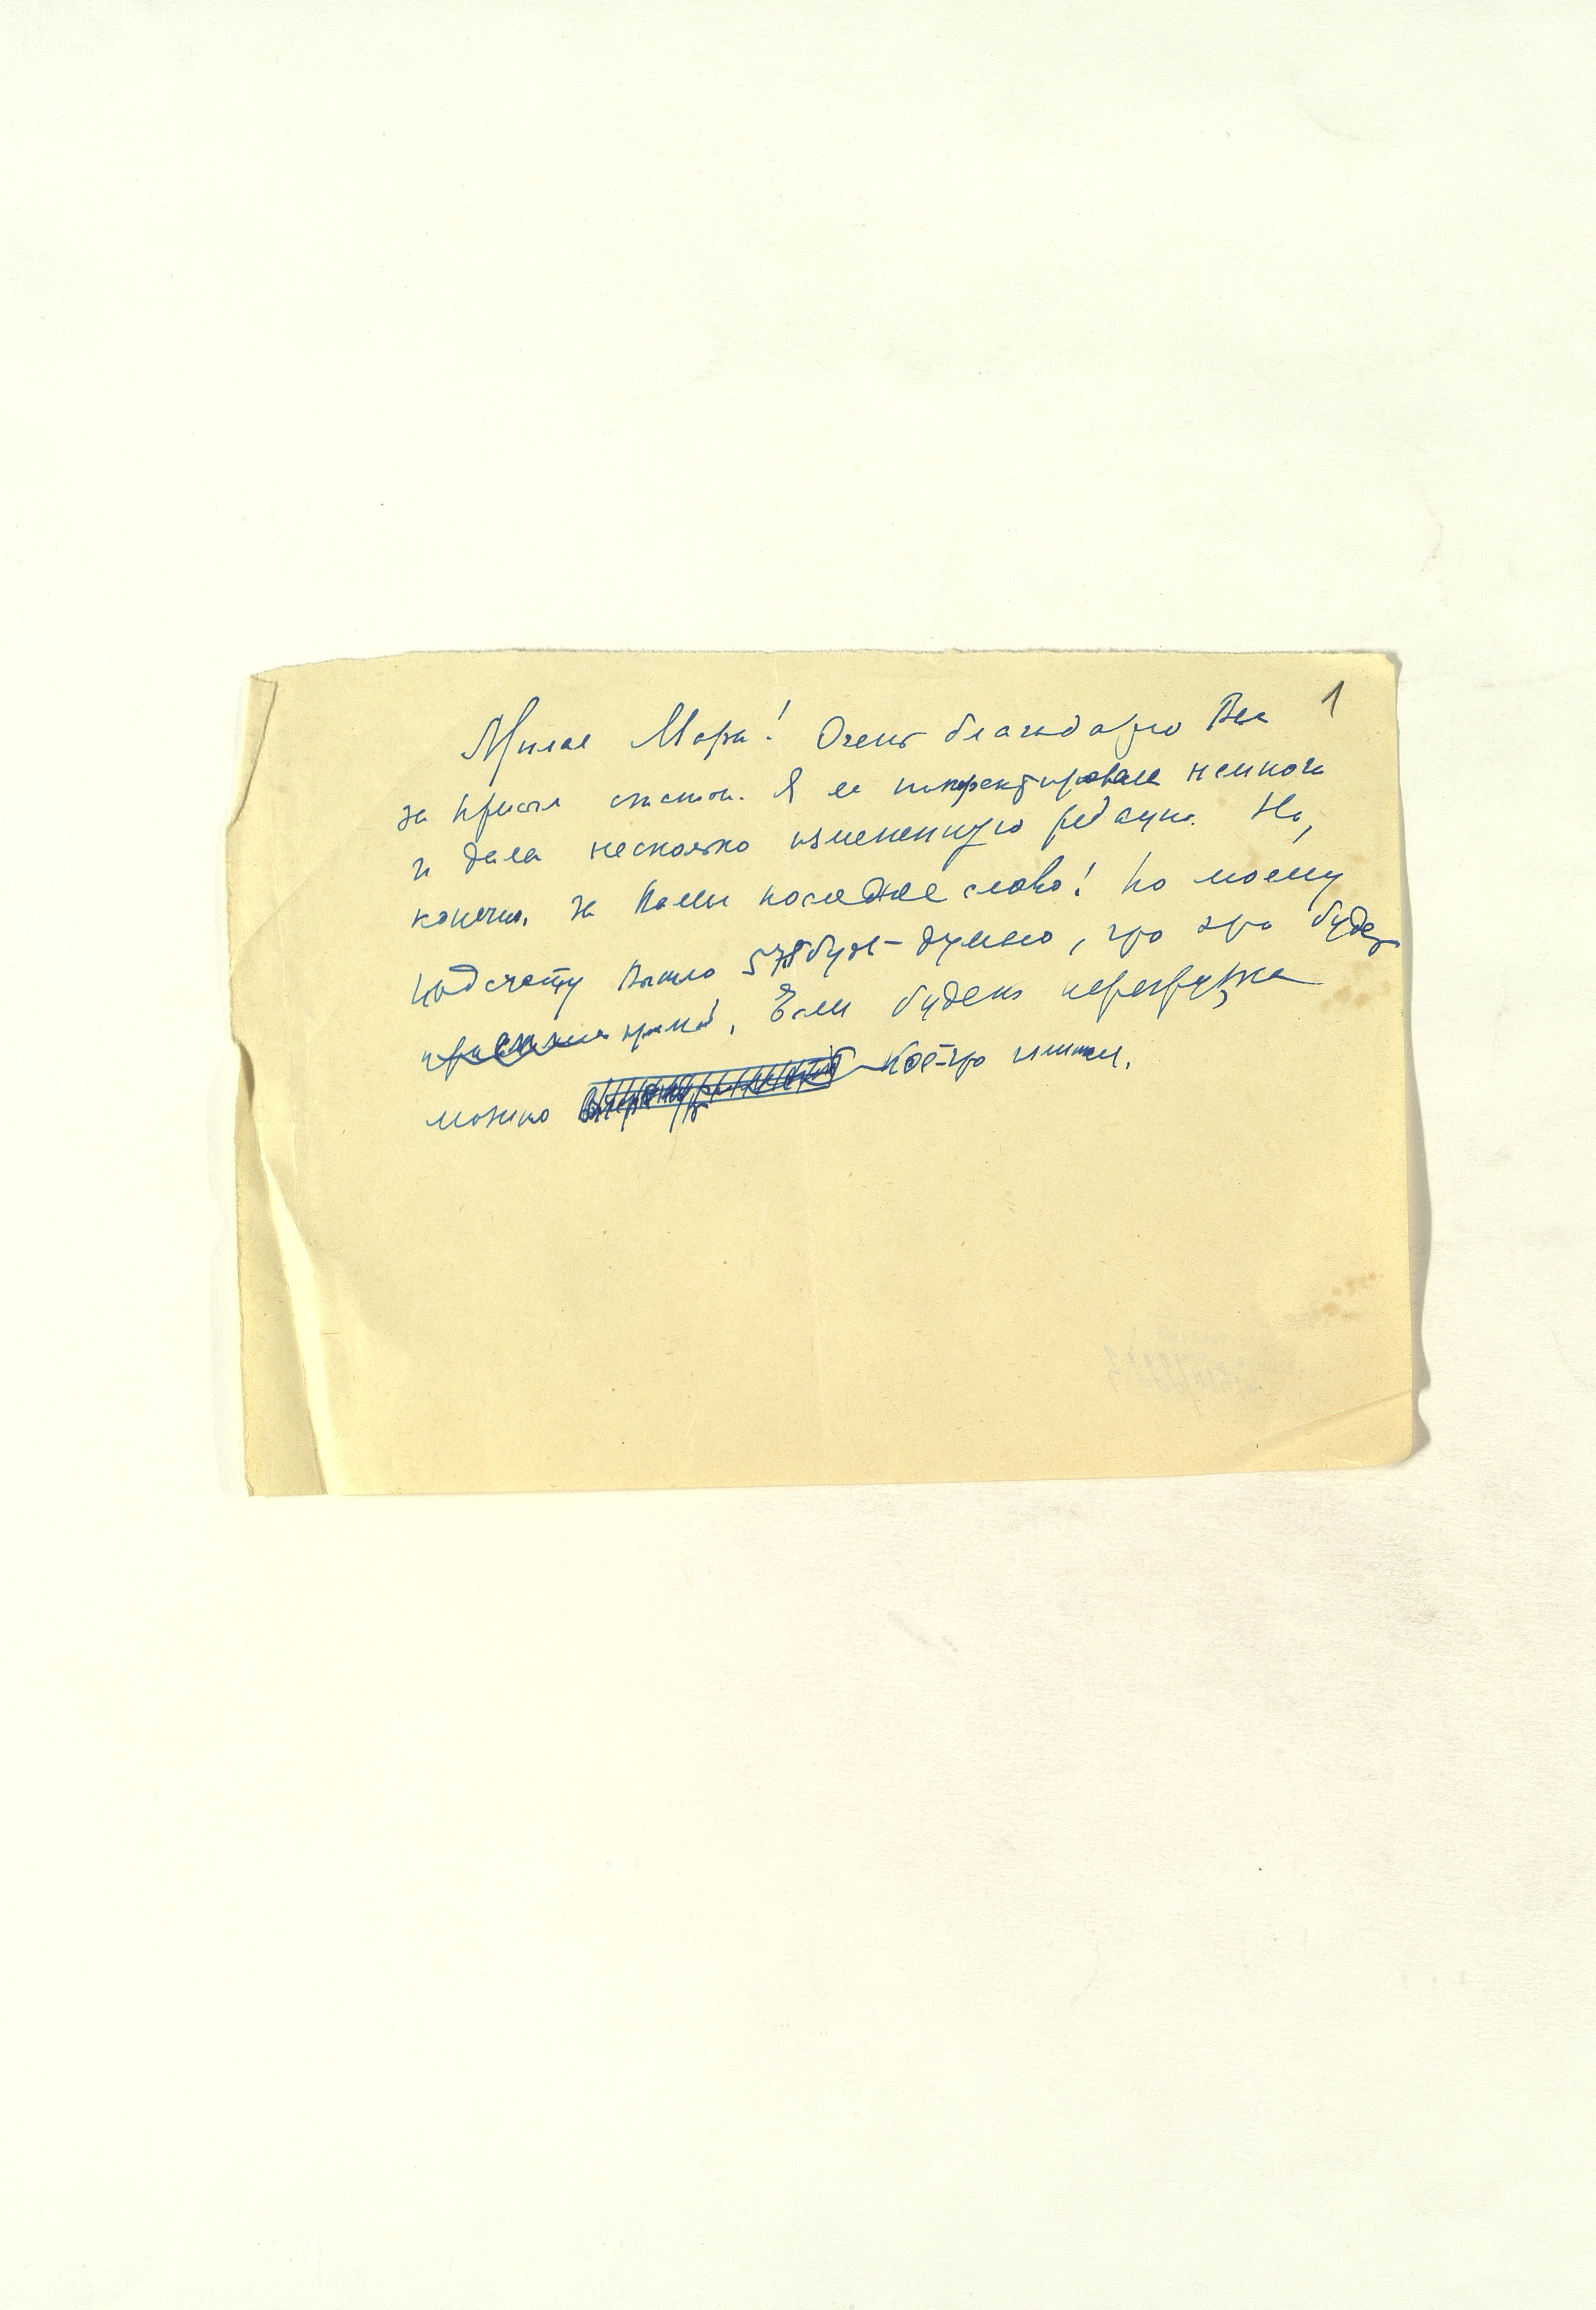 1
Милая Мара! Очень благодарю Вас
за присыл статьи. Я ее корректировала немного
и дала несколько измененную редакцию. Но,
конечно, за Вами последнее слово! По моему
подсчету вышло 578 букв - думаю, что это будет
Если будет перегрузка
можно кое-что